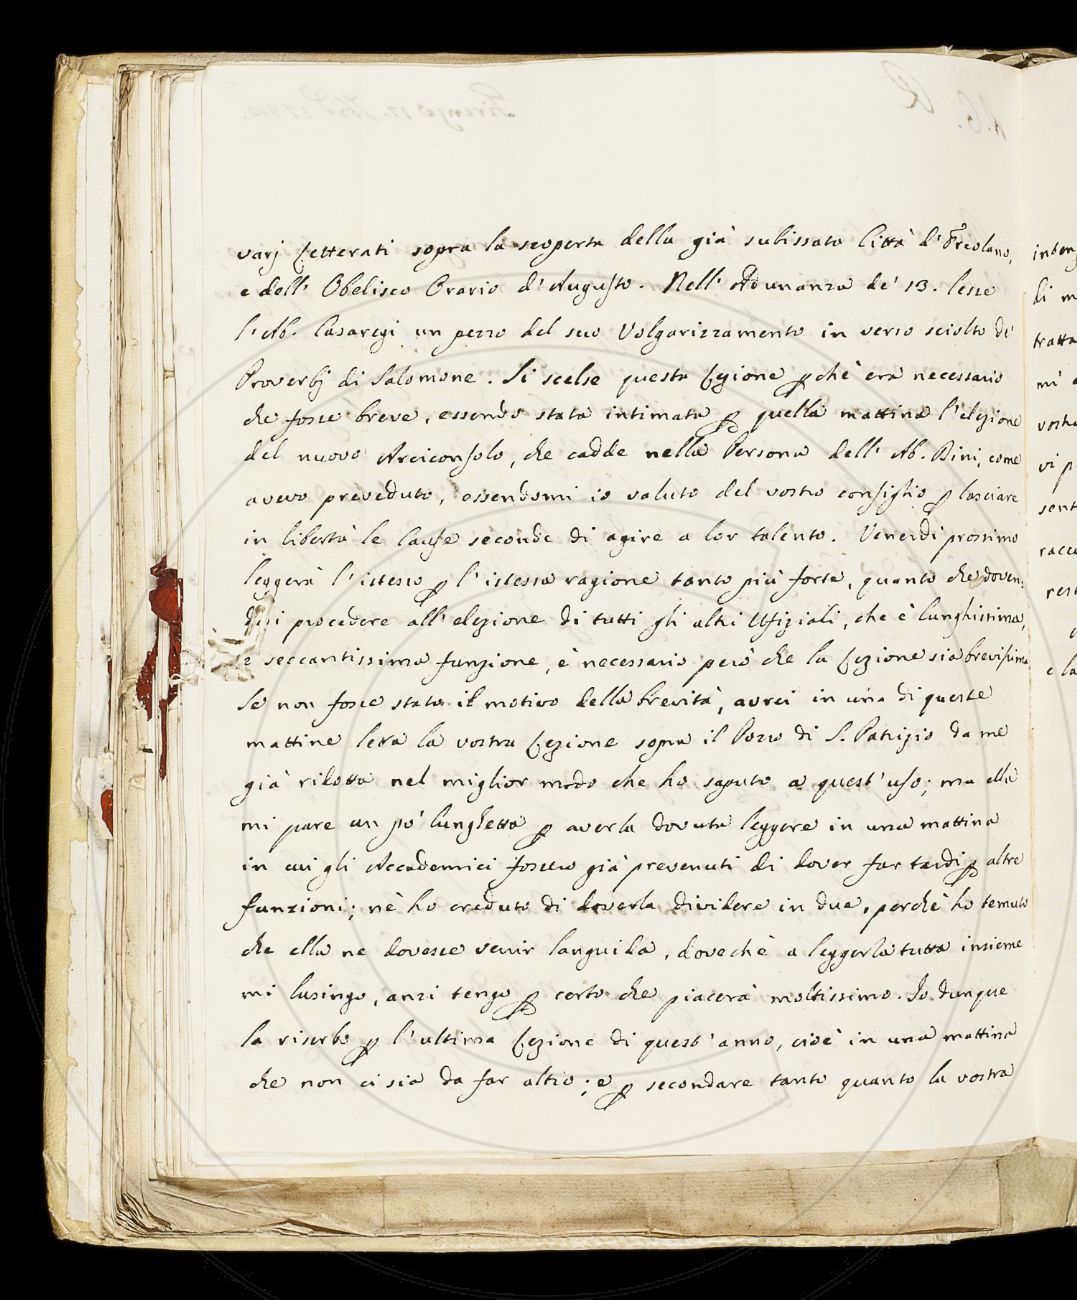 varj Letterati sopra la scoperta della già subissata Città d'Ercolano,
e dell' Obelisco Orario d'Augusto. Nell' Adunanza de' 13. lesse
l'Ab. Casaregi un pezzo del suo Volgarizzamento in verso sciolto de'
Proverbj di Salomone. Si scelse questa Lezione pchè era necessario
che fosse breve, essendo stata intimata p quella mattina l'elezione
del nuovo Arciconsolo, che cadde nella Persona dell' Ab. Bini, come
avevo preveduto, essendomi io valuto del vostro consiglio p lasciare
in libertà le Cause seconde di agire a lor talento. Venerdì prossimo
leggerà l'istesso p l'istessa ragione tanto più forte, quanto che doven:
dosi procedere all' elezione di tutti gli altri Ufiziali, che è lunghissima,
e seccantissima funzione, è necessario però che la Lezione sia brevissima
Se non fosse stato il motivo della brevità, avrei in una di queste
mattine letta la vostra Lezione sopra il Pozzo di S. Patrizio da me
già ridotta nel miglior modo che ho saputo a quest' uso; ma ella
mi pare un po' lunghetta p averla dovuta leggere in una mattina
in cui gli Accademici fossero già prevenuti di dover far tardi p altre
funzioni; nè ho creduto di doverla dividere in due, perchè ho temuto
che ella ne dovesse venir languida, dovechè a leggerla tutta insieme
mi lusingo, anzi tengo p certo che piacerà moltissimo. Io dunque
la riserbo p l'ultima Lezione di quest' anno, cioè in una mattina
che non ci sia da far altro; e p secondare tanto quanto la vostra